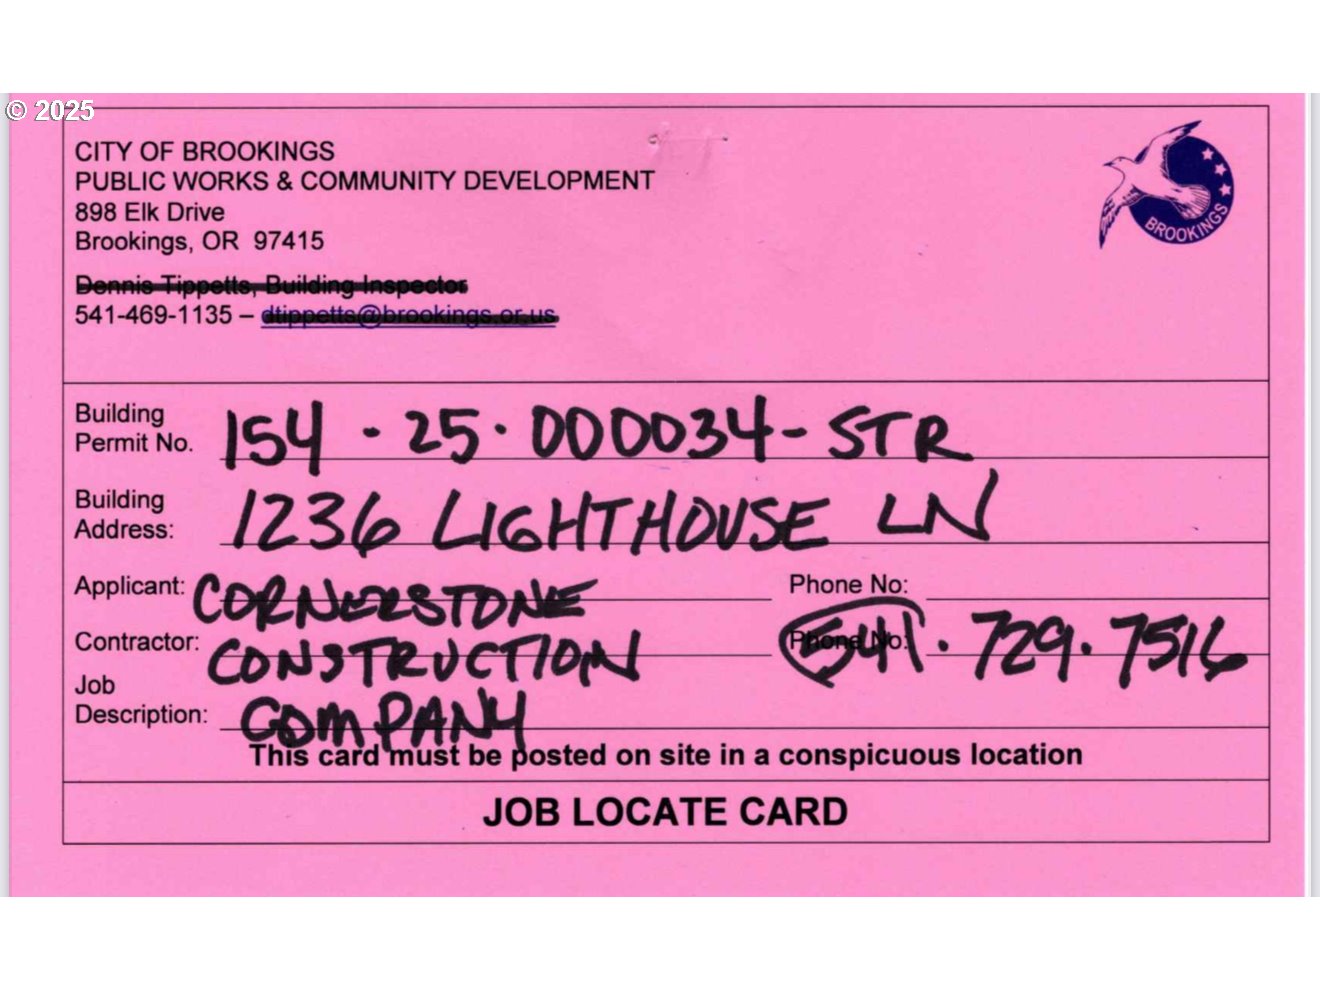 © 2025
CITY OF BROOKINGS
PUBLIC WORKS & COMMUNITY DEVELOPMENT
898 Elk Drive
Brookings, OR 97415
BROOKINGS
Dennis Tippetts, Building Inspector
541-469-1135 – dtippetts@brookings.or.us
Building
Permit No. 154-25-000034-STR
Building
Address: 1236 LIGHTHOUSE LN
Applicant: CORNERSTONE Phone No:
Contractor: CONSTRUCTION Phone No: 541-729-7516
Job
Description: COMPANY
This card must be posted on site in a conspicuous location
JOB LOCATE CARD